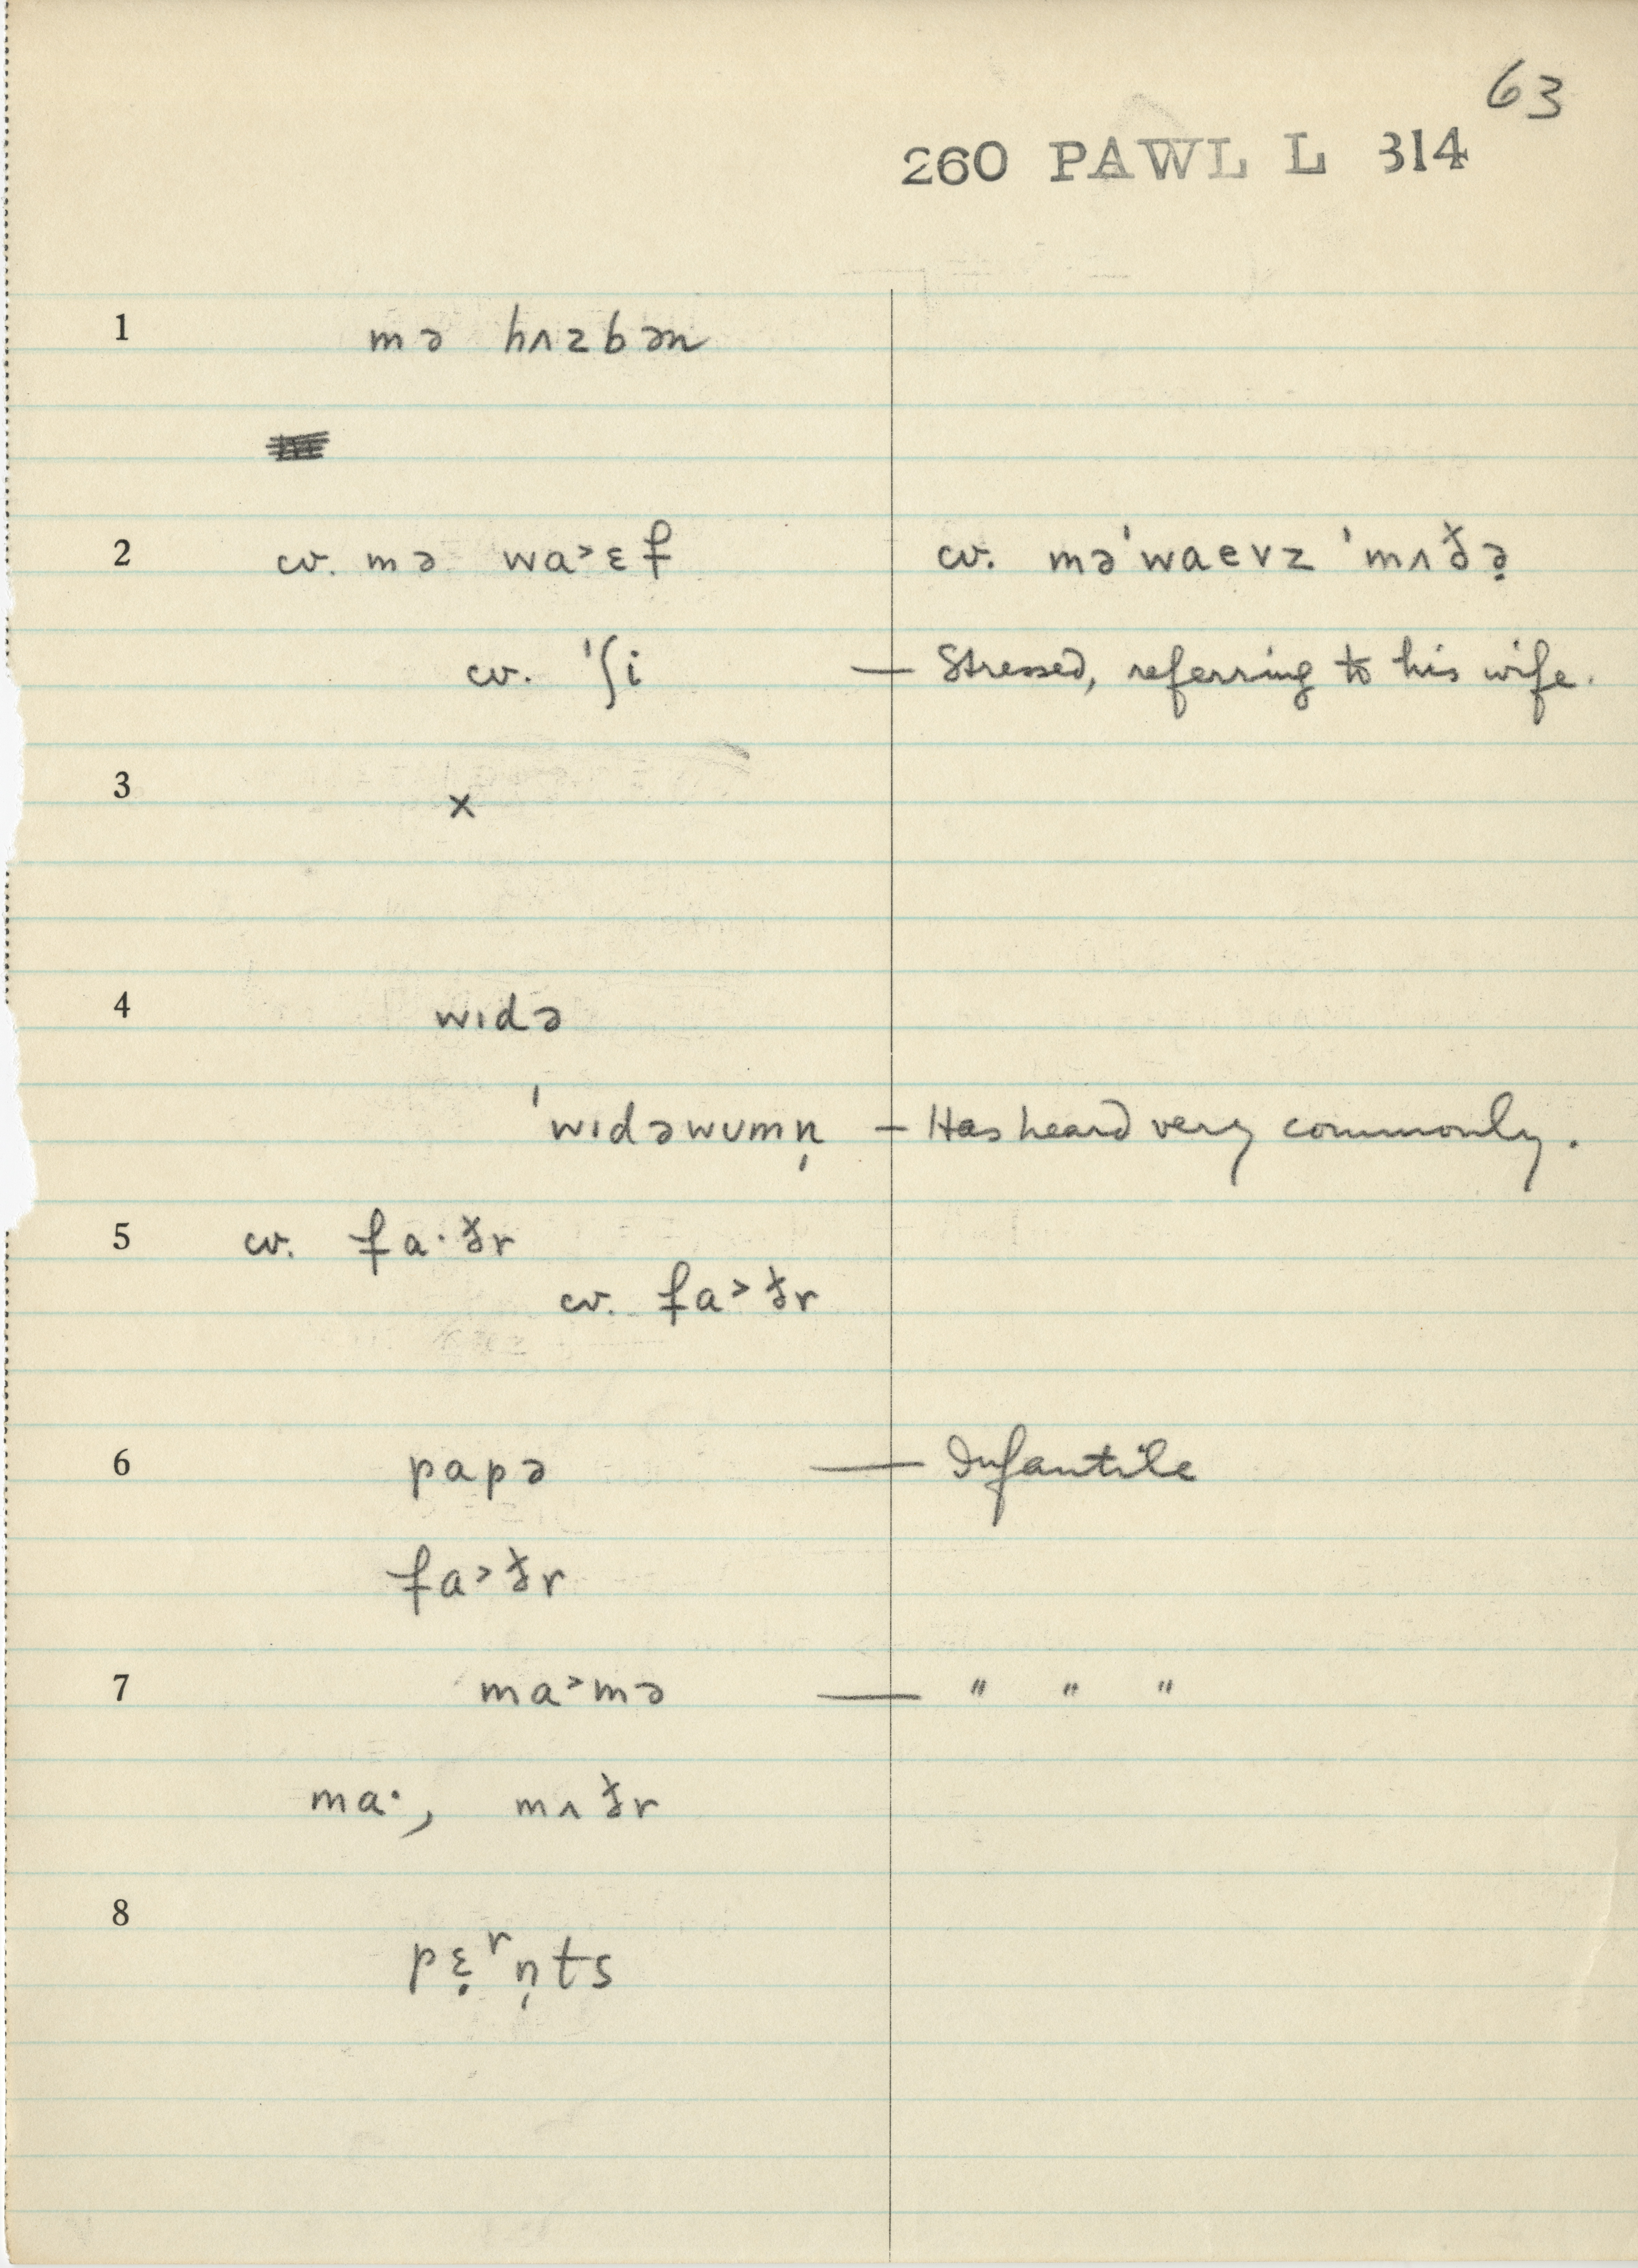 63
260 PAWL L 314
1 mə hʌzbən
2 cv. mə wa˃ɛf cv. mə'waevz 'mʌðə̣
cv. 'ʃi — Stressed, referring to his wife.
3 ×
4 wɪdə
'wɪdəwʊmn̩ — Has heard very commonly.
5 cv. fa·ðr
cv. fa˃ðr
6 papə — Infantile
fa˃ðr
7 ma˃mə — " " "
ma·, mʌðr
8 pɛ̣ʳn̩ts